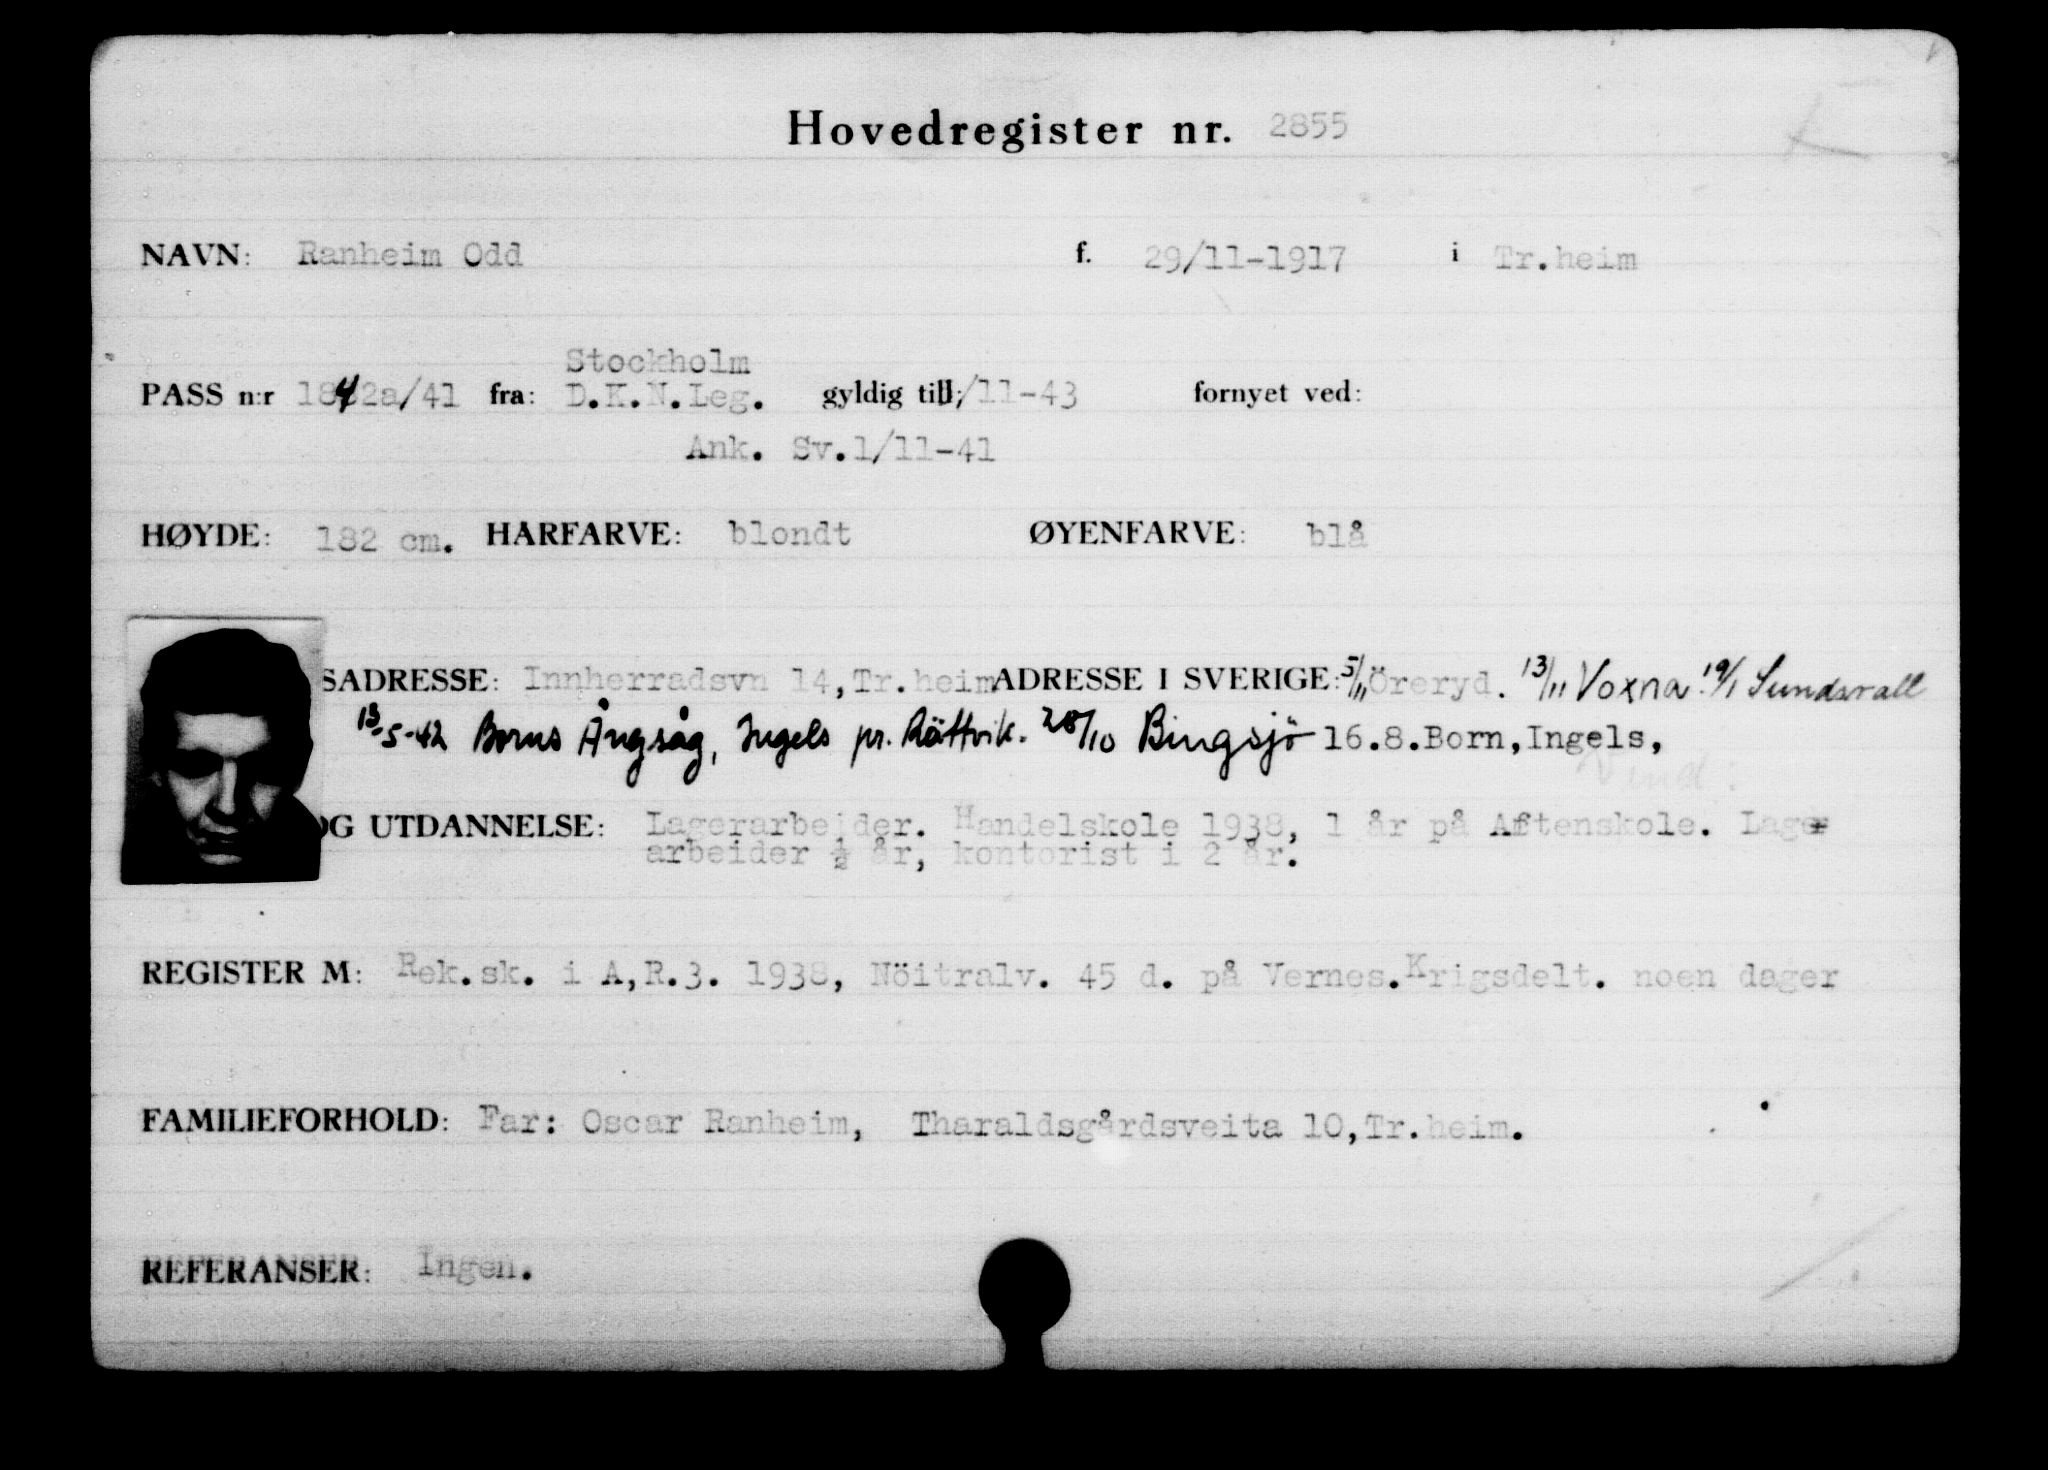 Hovedregister nr. 2855
NAVN: Ranheim Odd f. 29/11-1917 i Tr.heim
Stockholm
PASS n:r 1842a/41 fra: D.K.N.Leg. gyldig till: /11-43 fornyet ved:
Ank. Sv.1/11-41
HØYDE: 182 cm. HÅRFARVE: blondt ØYENFARVE: blå
SADRESSE: Innherradsvn 14,Tr.heim ADRESSE I SVERIGE: 5/11 Öreryd. 13/11 Voxna. 19/1 Sundsvall
13-5-42 Borns Ångsåg, Ingels pr. Rättvik. 28/10 Bingsjö 16.8.Born,Ingels,
OG UTDANNELSE: Lagerarbeider. Handelskole 1938, 1 år på Aftenskole. Lager
arbeider ½ år, kontorist i 2 år.
REGISTER M: Rek.sk. i A,R.3. 1938, Nöitralv. 45 d. på Vernes.Krigsdelt. noen dager
FAMILIEFORHOLD: Far: Oscar Ranheim, Tharaldsgårdsveita 10,Tr.heim.
REFERANSER: Ingen.